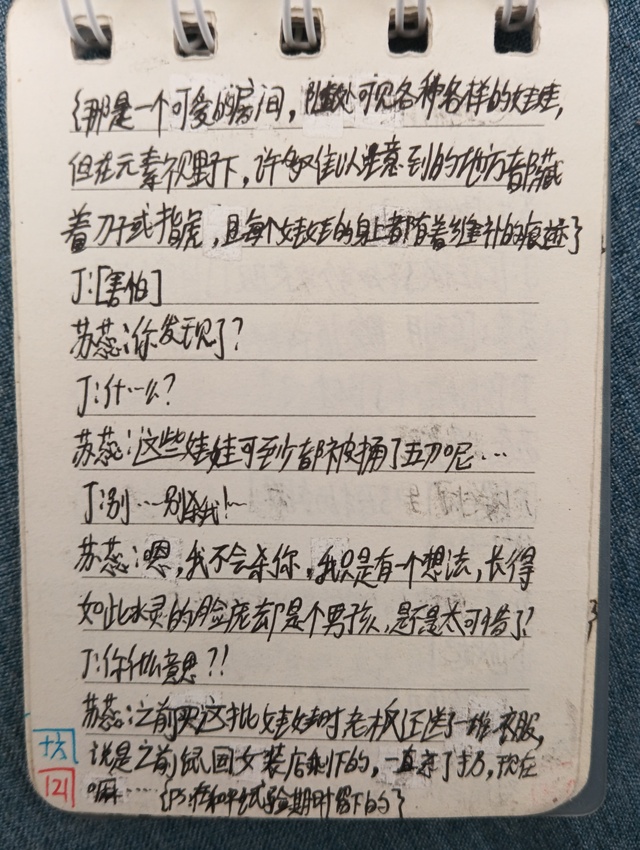 {那是一个可爱的房间，随处可见各种各样的娃娃，
但在元素视野下，许多难以注意到的地方都藏
着刀子或指虎，且每个娃娃的身上都有着缝补的痕迹}
J:[害怕]
苏蕊:你发现了?
J:什…么?
苏蕊:这些娃娃可至少都被捅了五刀呢…
J:别…别杀我!~
苏蕊:嗯，我不会杀你，我只是有一个想法，长得
如此水灵的脸庞却是个男孩，是不是太可惜了?
J:你什么意思?!
苏蕊:之前买这批娃娃时老板还送了一堆衣服，
说是之前 回女装店剩下的，一直弃了扔，现在
嘛……{ 试验期时留下的}
十六
121